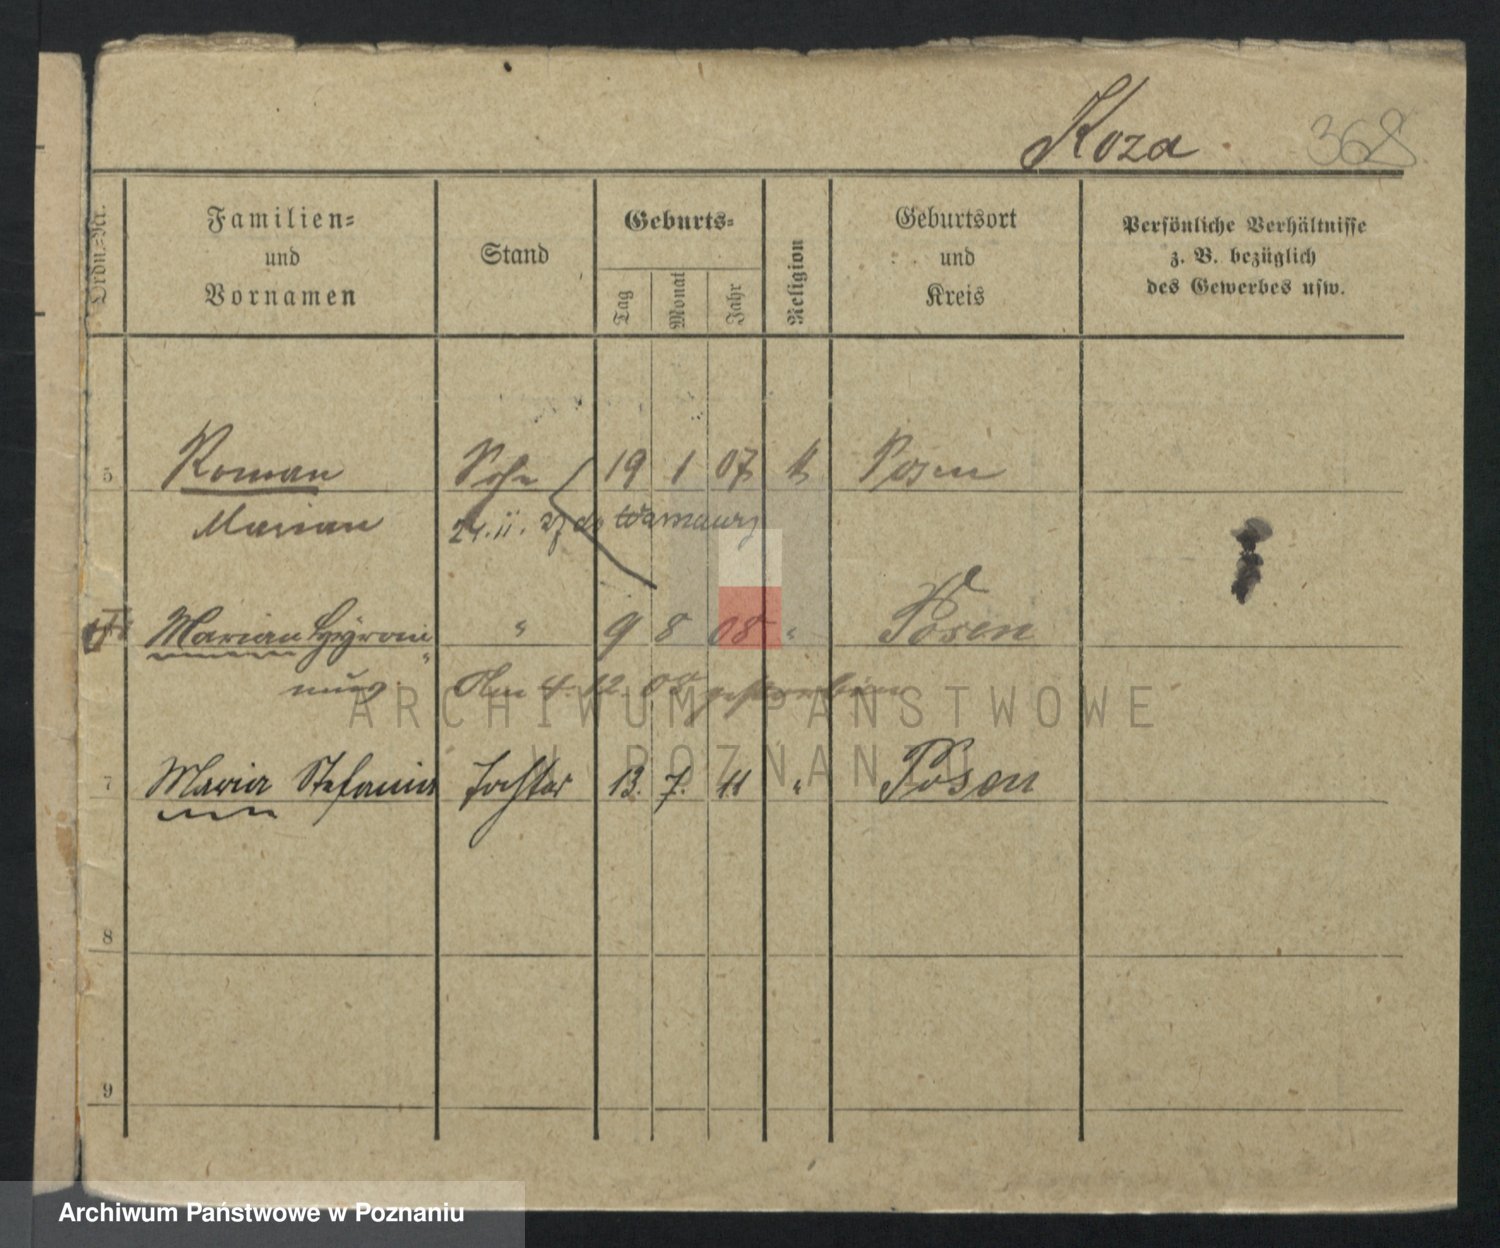 Koza. 368
Ordn.=Nr.
Familien=
und
Vornamen
Stand
Geburts=
Tag
Monat
Jahr
Religion
Geburtsort
und
Kreis
Persönliche Verhältnisse
z. B. bezüglich
des Gewerbes usw.
5 Roman Sohn 19 1 07 k Posen
Marian 24.ii.27 do Warszawy
Marian Hyroni " 9 8 08 " Posen
"mus Am 4. 12. 08 gestorben
7 Maria Stefania Tochter 13. 7. 11 " Posen
8
9
ARCHIWUM PAŃSTWOWE
W POZNANIU
Archiwum Państwowe w Poznaniu